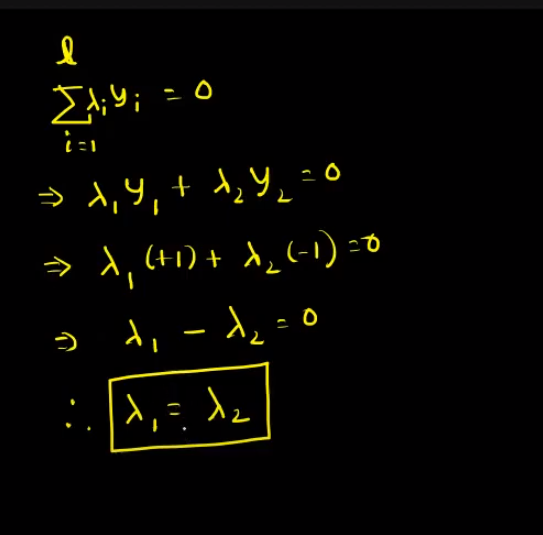 l
∑λᵢyᵢ = 0
i=1
⇒ λ₁y₁ + λ₂y₂ = 0
⇒ λ₁(+1) + λ₂(-1) = 0
⇒ λ₁ - λ₂ = 0
∴ λ₁ = λ₂